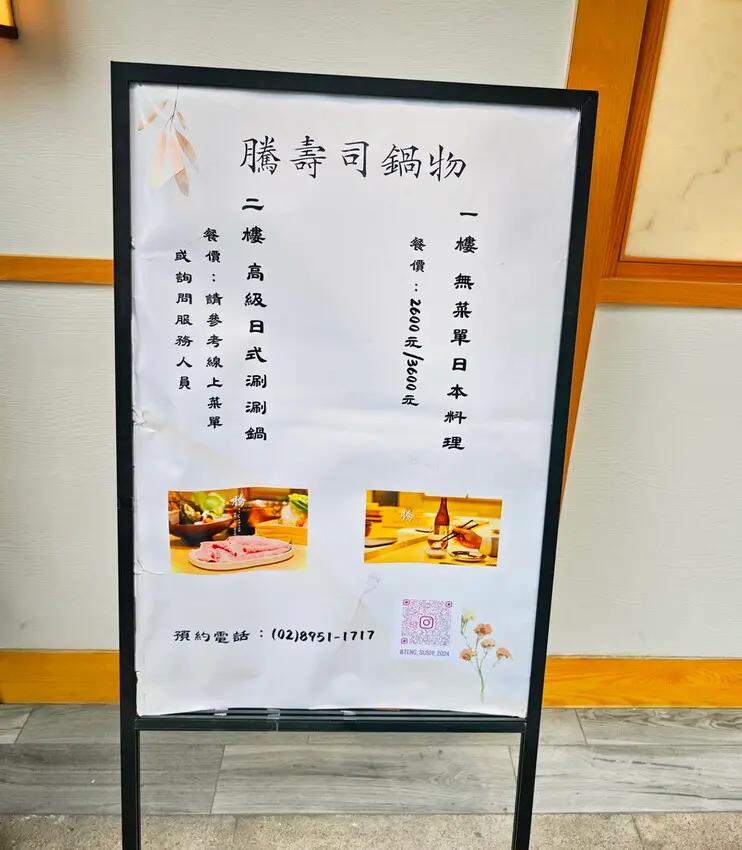 騰壽司鍋物
一樓 無菜單日本料理
餐價：2600元/3600元
二樓 高級日式涮涮鍋
餐價：請參考線上菜單
或詢問服務人員
預約電話：(02)8951-1717
@TENG_SUSHI_2024